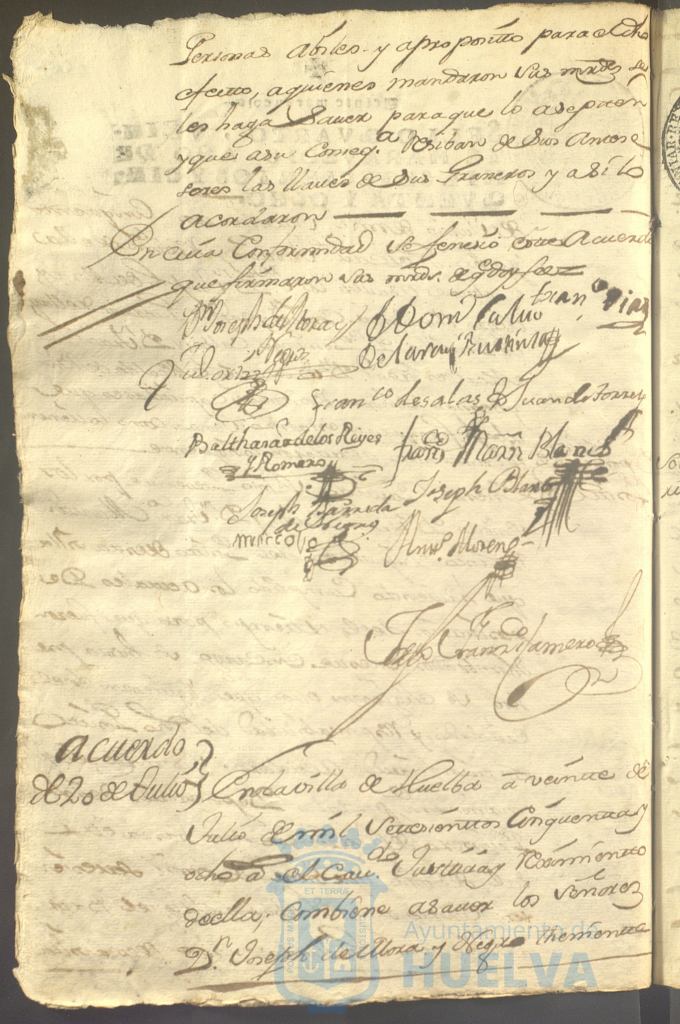 Personas abiles y aproposito para el dho
efecto, aquienes mandaron sus mrdes se
les haga saver para que lo asepten
y que asu conseqa. resiban de sus antese
sores las llaves de sus Graneros y asi lo
acordaron
En cuia Conformidad se fenesio este Acuerdo
que firmaron sus mrds. de q doy fee
Dn. Joseph de Mora y Negro
Dom Calvo
Franco Diaz
Franco de salas
Juan de Torres
Balthasar de los Reyes
y Romero
Franco Marin Blanco
Joseph Blanco
Joseph
Anto. Moreno
Franco Romero
acuerdo
de 20 de Julio
En la villa de Huelba a veinte de
Julio de mil setesientos Cinquenta y
ocho a. el Cavdo. Justicia y reximiento
de ella, combiene asaver los Señores
Dn. Joseph de Mora y Negro theniente
ET TERRÆ
Ayuntamiento de
HUELVA